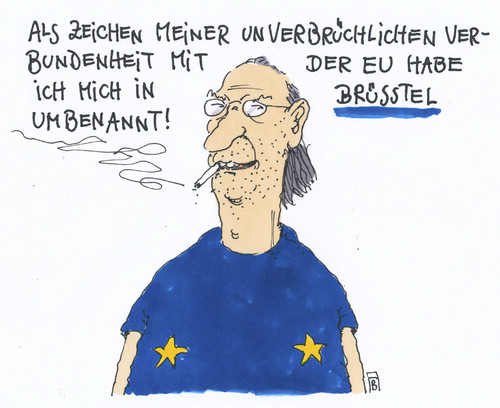 ALS ZEICHEN MEINER UNVERBRÜCHLICHEN VER-
BUNDENHEIT MIT DER EU HABE
ICH MICH IN BRÜSSTEL
UMBENANNT!
B